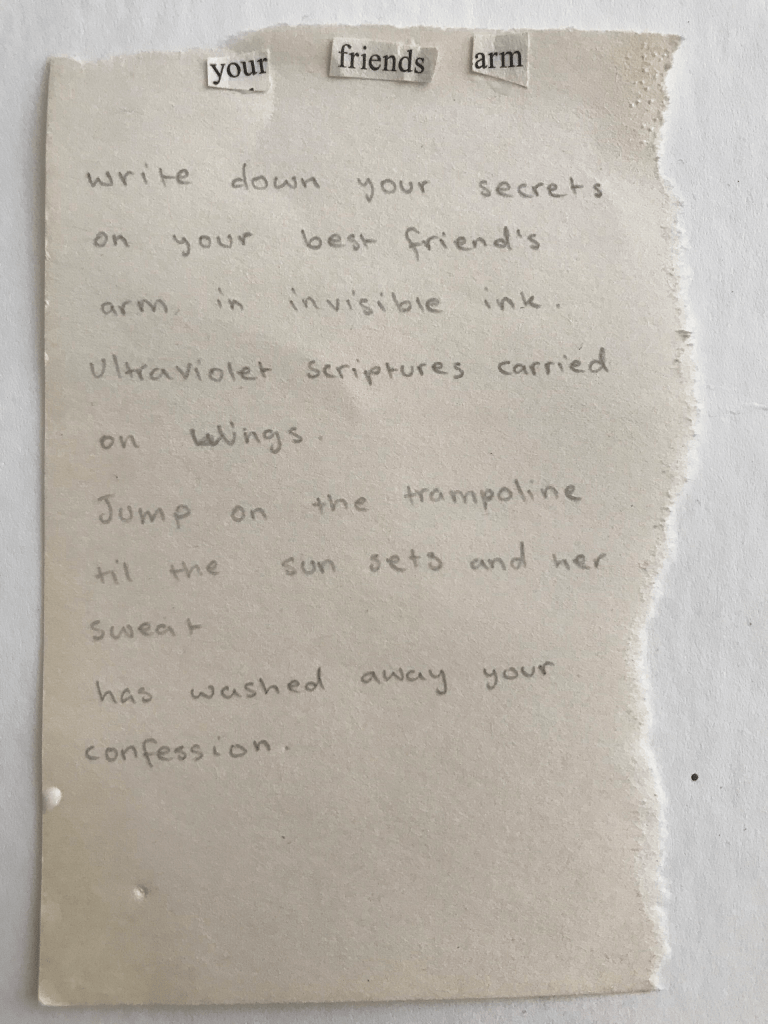 your friends arm
write down your secrets
on your best friend's
arm, in invisible ink.
Ultraviolet scriptures carried
on wings.
Jump on the trampoline
til the sun sets and her
sweat
has washed away your
confession.